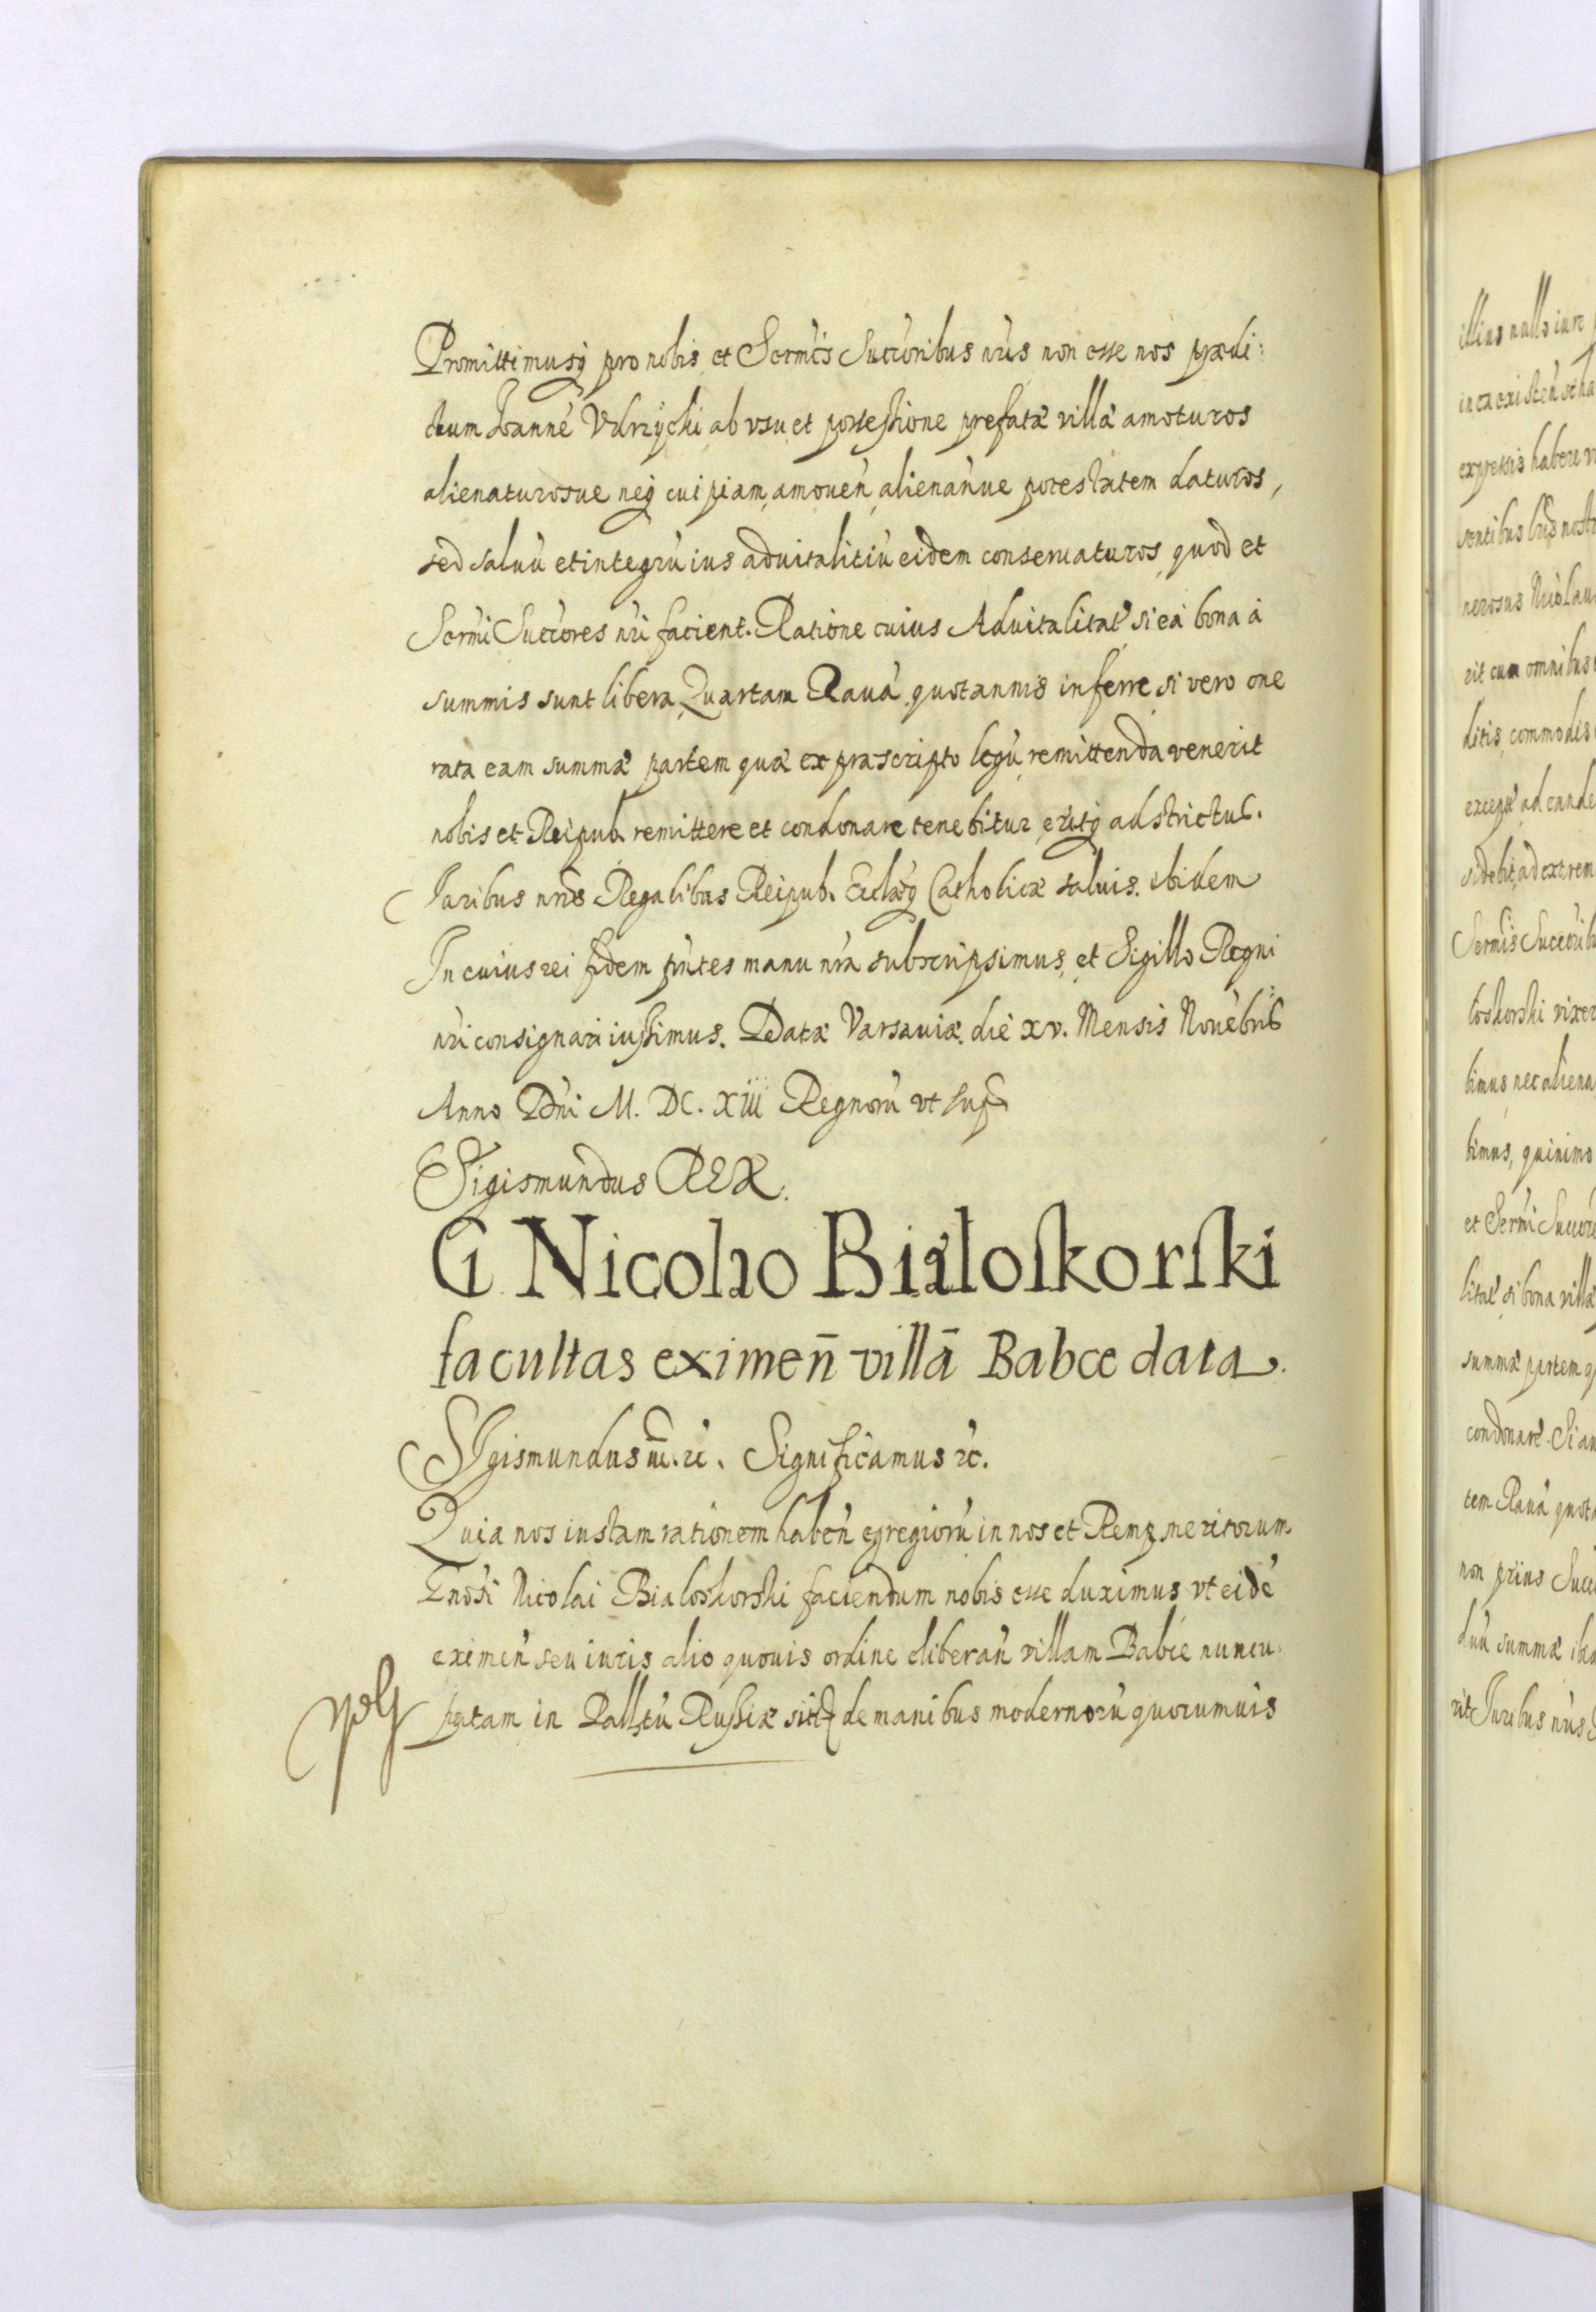 Promittimusq; pro nobis et Sermis Succoribus nris non esse nos prædi:
ctum Joannē Vdrzÿcki ab vsu et possessione prefatæ villæ amoturos
alienaturosue neq; cuipiam amouen̄ alienan̄ue potestatem daturos,
sed saluū et integrū ius aduitalitiū eidem conseruaturos quod et
Sermi Succores nri facient. Ratione cuius Aduitalitat̄ si ea bona à
summis sunt libera Quartam Rauā quotannis inferre si vero one
rata eam summæ partem quæ ex præscripto legū remittenda venerit
nobis et Reipub. remittere et condonare tenebitur eritq; adstrictus.
Juribus nris Regalibus Reipub. Ecclæq; Catholicæ saluis. ibidem
In cuius rei fidem pntes manu nra subscripsimus et Sigillo Regni
nri consignari iussimus. Datæ Varsauiæ die xv. Mensis Nouēbris
Anno Dni M. DC. XIII Regnorū vt sup
Sigismundus REX.
G Nicolao Biáloskorski
facultas eximen̄ villā Babce data.
SIgismundus III. &c. Significamus &c.
Quia nos iustam rationem haben̄ egregiorū in nos et Remp. meritorum
Gnosi Nicolai Bialoskorski faciendum nobis esse duximus vt eidē
eximen̄ seu iuris alio quouis ordine eliberan̄ villam Babce nuncu
patam in Pallatū Russiæ sitā de manibus modernorū quorumuis
illius nullo iure
in ea existen̄
expressis habere
sentibus lris nostr
nerosus Nicolau
rit cum omnibus
ditis, commodis
except̄ ad eande
sidebit, ad extrem
Sermis Succorib
loskorski vixer
bimus nec aliena
bimus, quinimo
et Sermi Succore
litat̄ si bona villæ
summæ partem q
condonare. Si au
tem Rauā quota
non prius Succe
duū summæ
rit Juribus nris